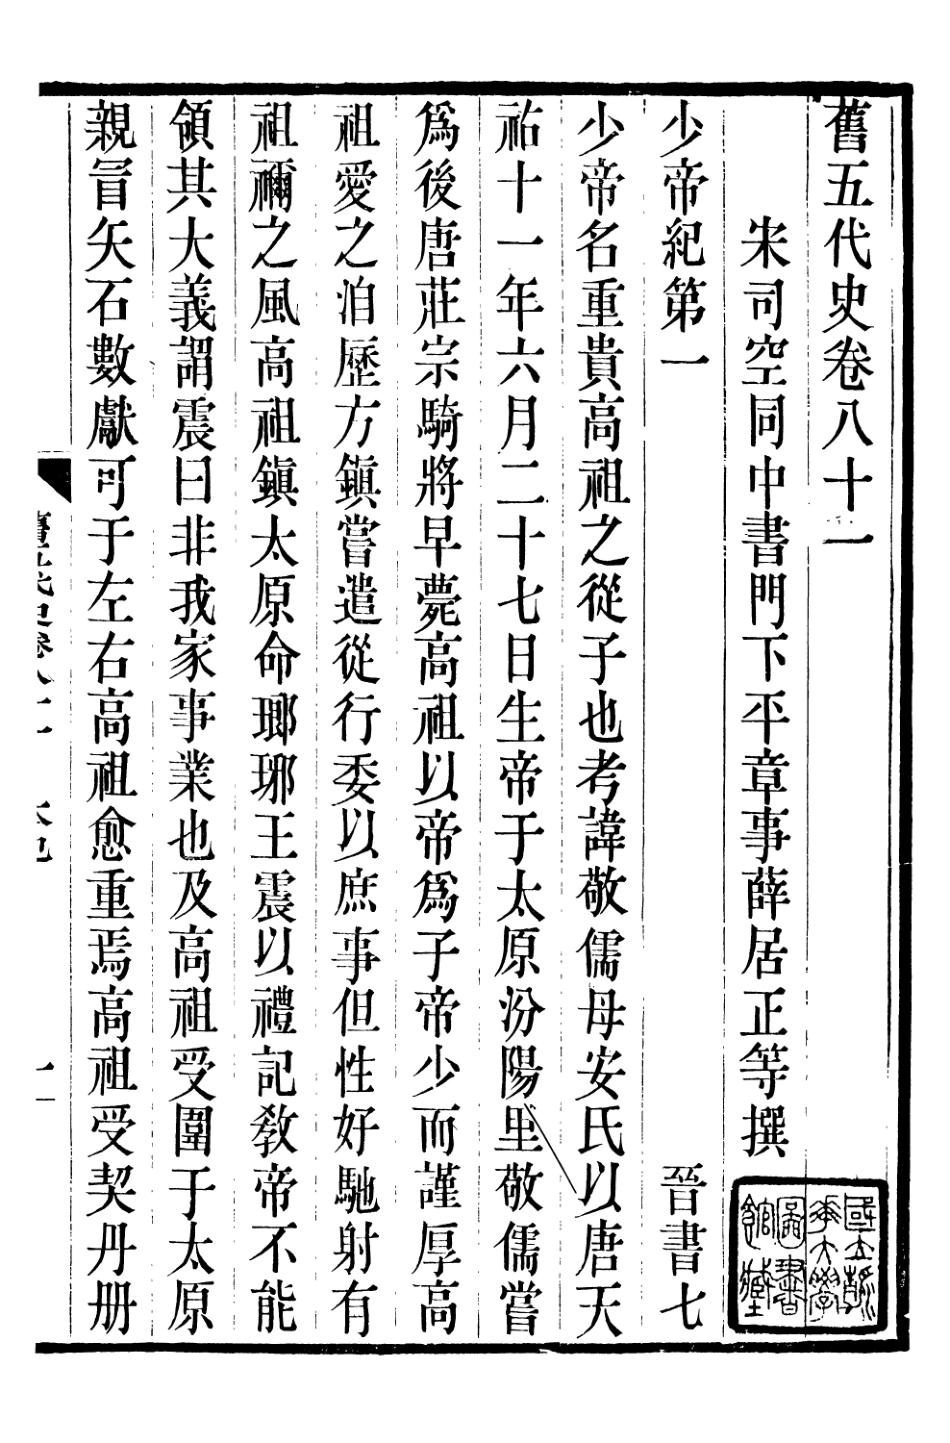 舊五代史卷八十一
宋司空同中書門下平章事薛居正等撰
少帝紀第一 晉書七
少帝名重貴高祖之從子也考諱敬儒母安氏以唐天
祐十一年六月二十七日生帝于太原汾陽里敬儒嘗
爲後唐莊宗騎將早薨高祖以帝爲子帝少而謹厚高
祖愛之洎歷方鎮嘗遣從行委以庶事但性好馳射有
祖禰之風高祖鎮太原命瑯琊王震以禮記敎帝不能
領其大義謂震曰非我家事業也及高祖受圍于太原
親冒矢石數獻可于左右高祖愈重焉高祖受契丹册
舊五代史卷八十一
一
國立清華大學圖書館藏